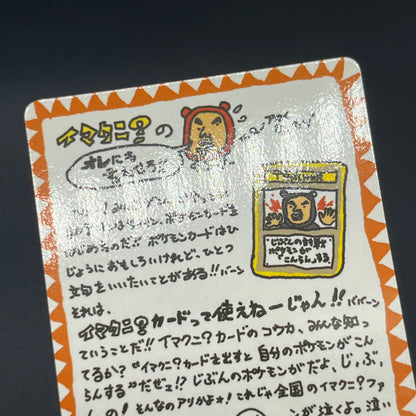 イマクニ?の
オレにも
言わせろ!!
ポケモンカードを
はじめたのだ!! ポケモンカードはひ
じょうにおもしろいけれど、ひとつ
文句をいいたいことがある!! バーン
それは、
イマクニ?カードって使えねーじゃん!! ババーン
ていうことだ!! イマクニ?カードのコウカ、みんな知っ
てるか? "イマクニ?カードを出すと自分のポケモンがこん
らんする"だぜ!? じぶんのポケモンがだよ、じ,ぶ
んの! そんなのアリかよ*! これじゃ全国のイマクニ?ファ
が泣くよ。泣い
じぶんの対戦
ポケモンが
こんらんする